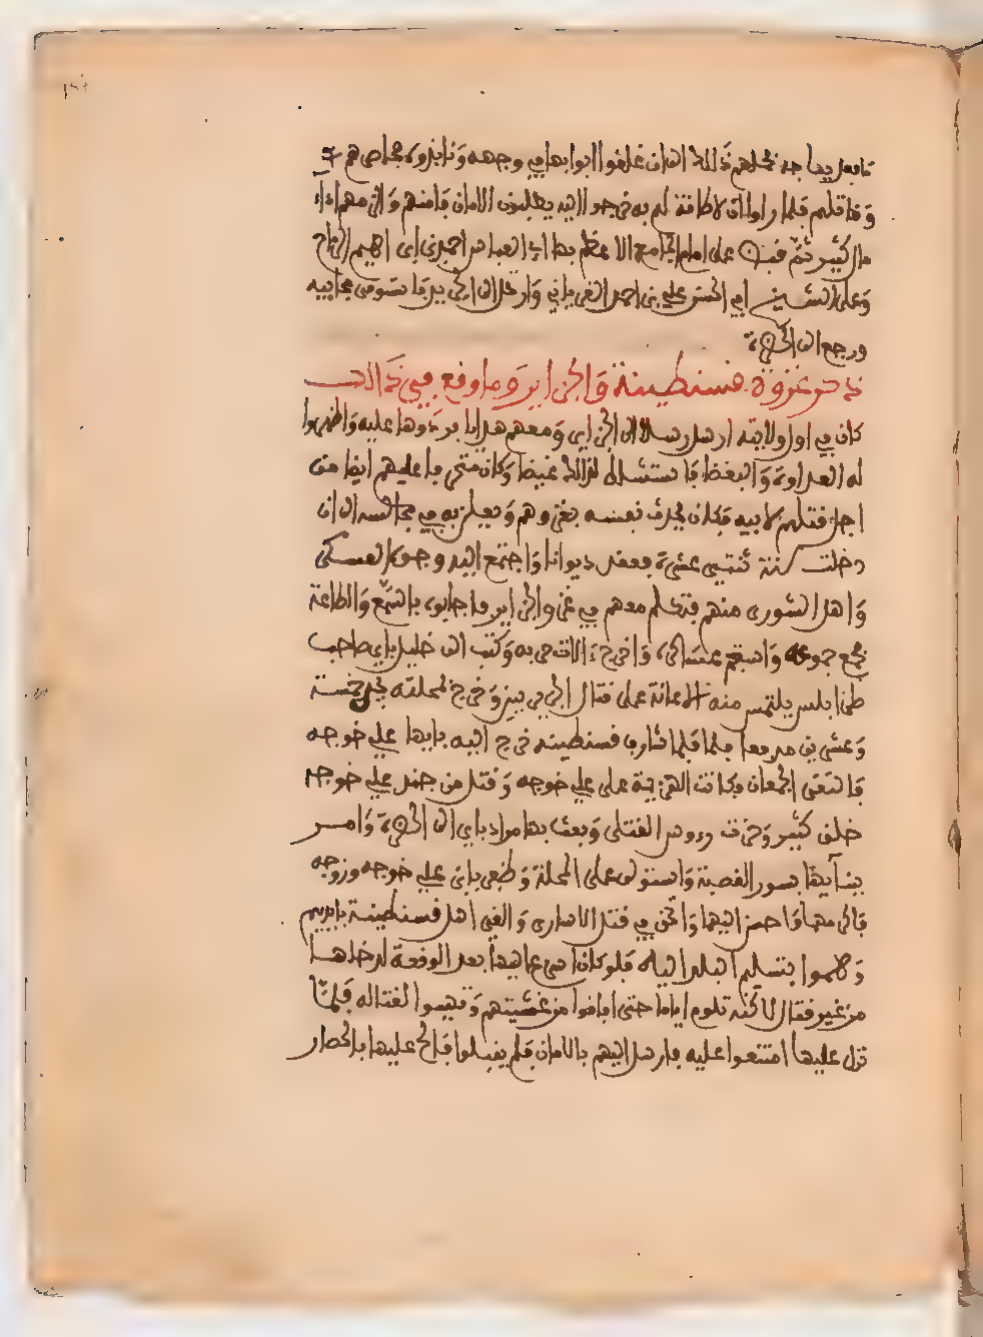 ما فعل بها
وقاتلهم فلما راوا ان لا طاقة لهم به خرجوا اليه يطلبون الامان فامنهم واتى منهم
مال كثير ثم قبض على امام الجامع الاعظم بها ابي العباس احمد بن ابراهيم
وعلى الشيخ ابي الحسن علي بن احمد
ورجع الى الحضرة
ذكر غزوة قسنطينة والجزاير وما وقع في ذالك
كان في اول ولايته ارسل رسلا الى الجزاير ومعهم هدايا فردوها عليه واظهروا
له العداوة والبغضا فاستشاط لذالك غيضا وكان متحرفا عليهم ايضا من
اجل قتلهم لابيه فكان يحدث نفسه بغزوهم ويعلن به في مجالسه الى ان
دخلت سنة ثنتي عشرة فعقد ديوانا واجتمع اليه وجوه العسكر
واهل الشورى منهم فتكلم معهم في غزو الجزاير فاجابوه بالسمع والطاعة
فجمع جموعه واستفهم عساكره واخرج ءالات حربه وكتب الى خليل باي صاحب
طرابلس يلتمس منه الاعانة على قتال الجزيريين وخرج لمحلته يجر خمسة
وعشرين مدفعا فلما شارف قسنطينة خرج اليه بايها علي خوجه
فالتقى الجمعان فكانت الهزيمة على علي خوجه وقتل من جند علي خوجه
خلق كثير وحزت رءوس القتلى وبعث بها مراد باي الى الحضرة وامر
ببنآيها بسور القصبة واستولى على المحلة وظفر باي علي خوجه وزوجه
فاكرمهما واحسن اليهما واثخن في قتل الاسارى والقى اهل قسنطينة بايديهم
ولاموا بتسليم البلد اليه فلو كان اسرع اليها بعد الوقعة لدخلها
من غير قتال لاكنه تلوم اياما حتى افاقوا من غشيتهم وتهيئوا لقتاله فلما
نزل عليها امتنعوا عليه فارسل اليهم بالامان فلم يقبلوا فالح عليها بالحصار